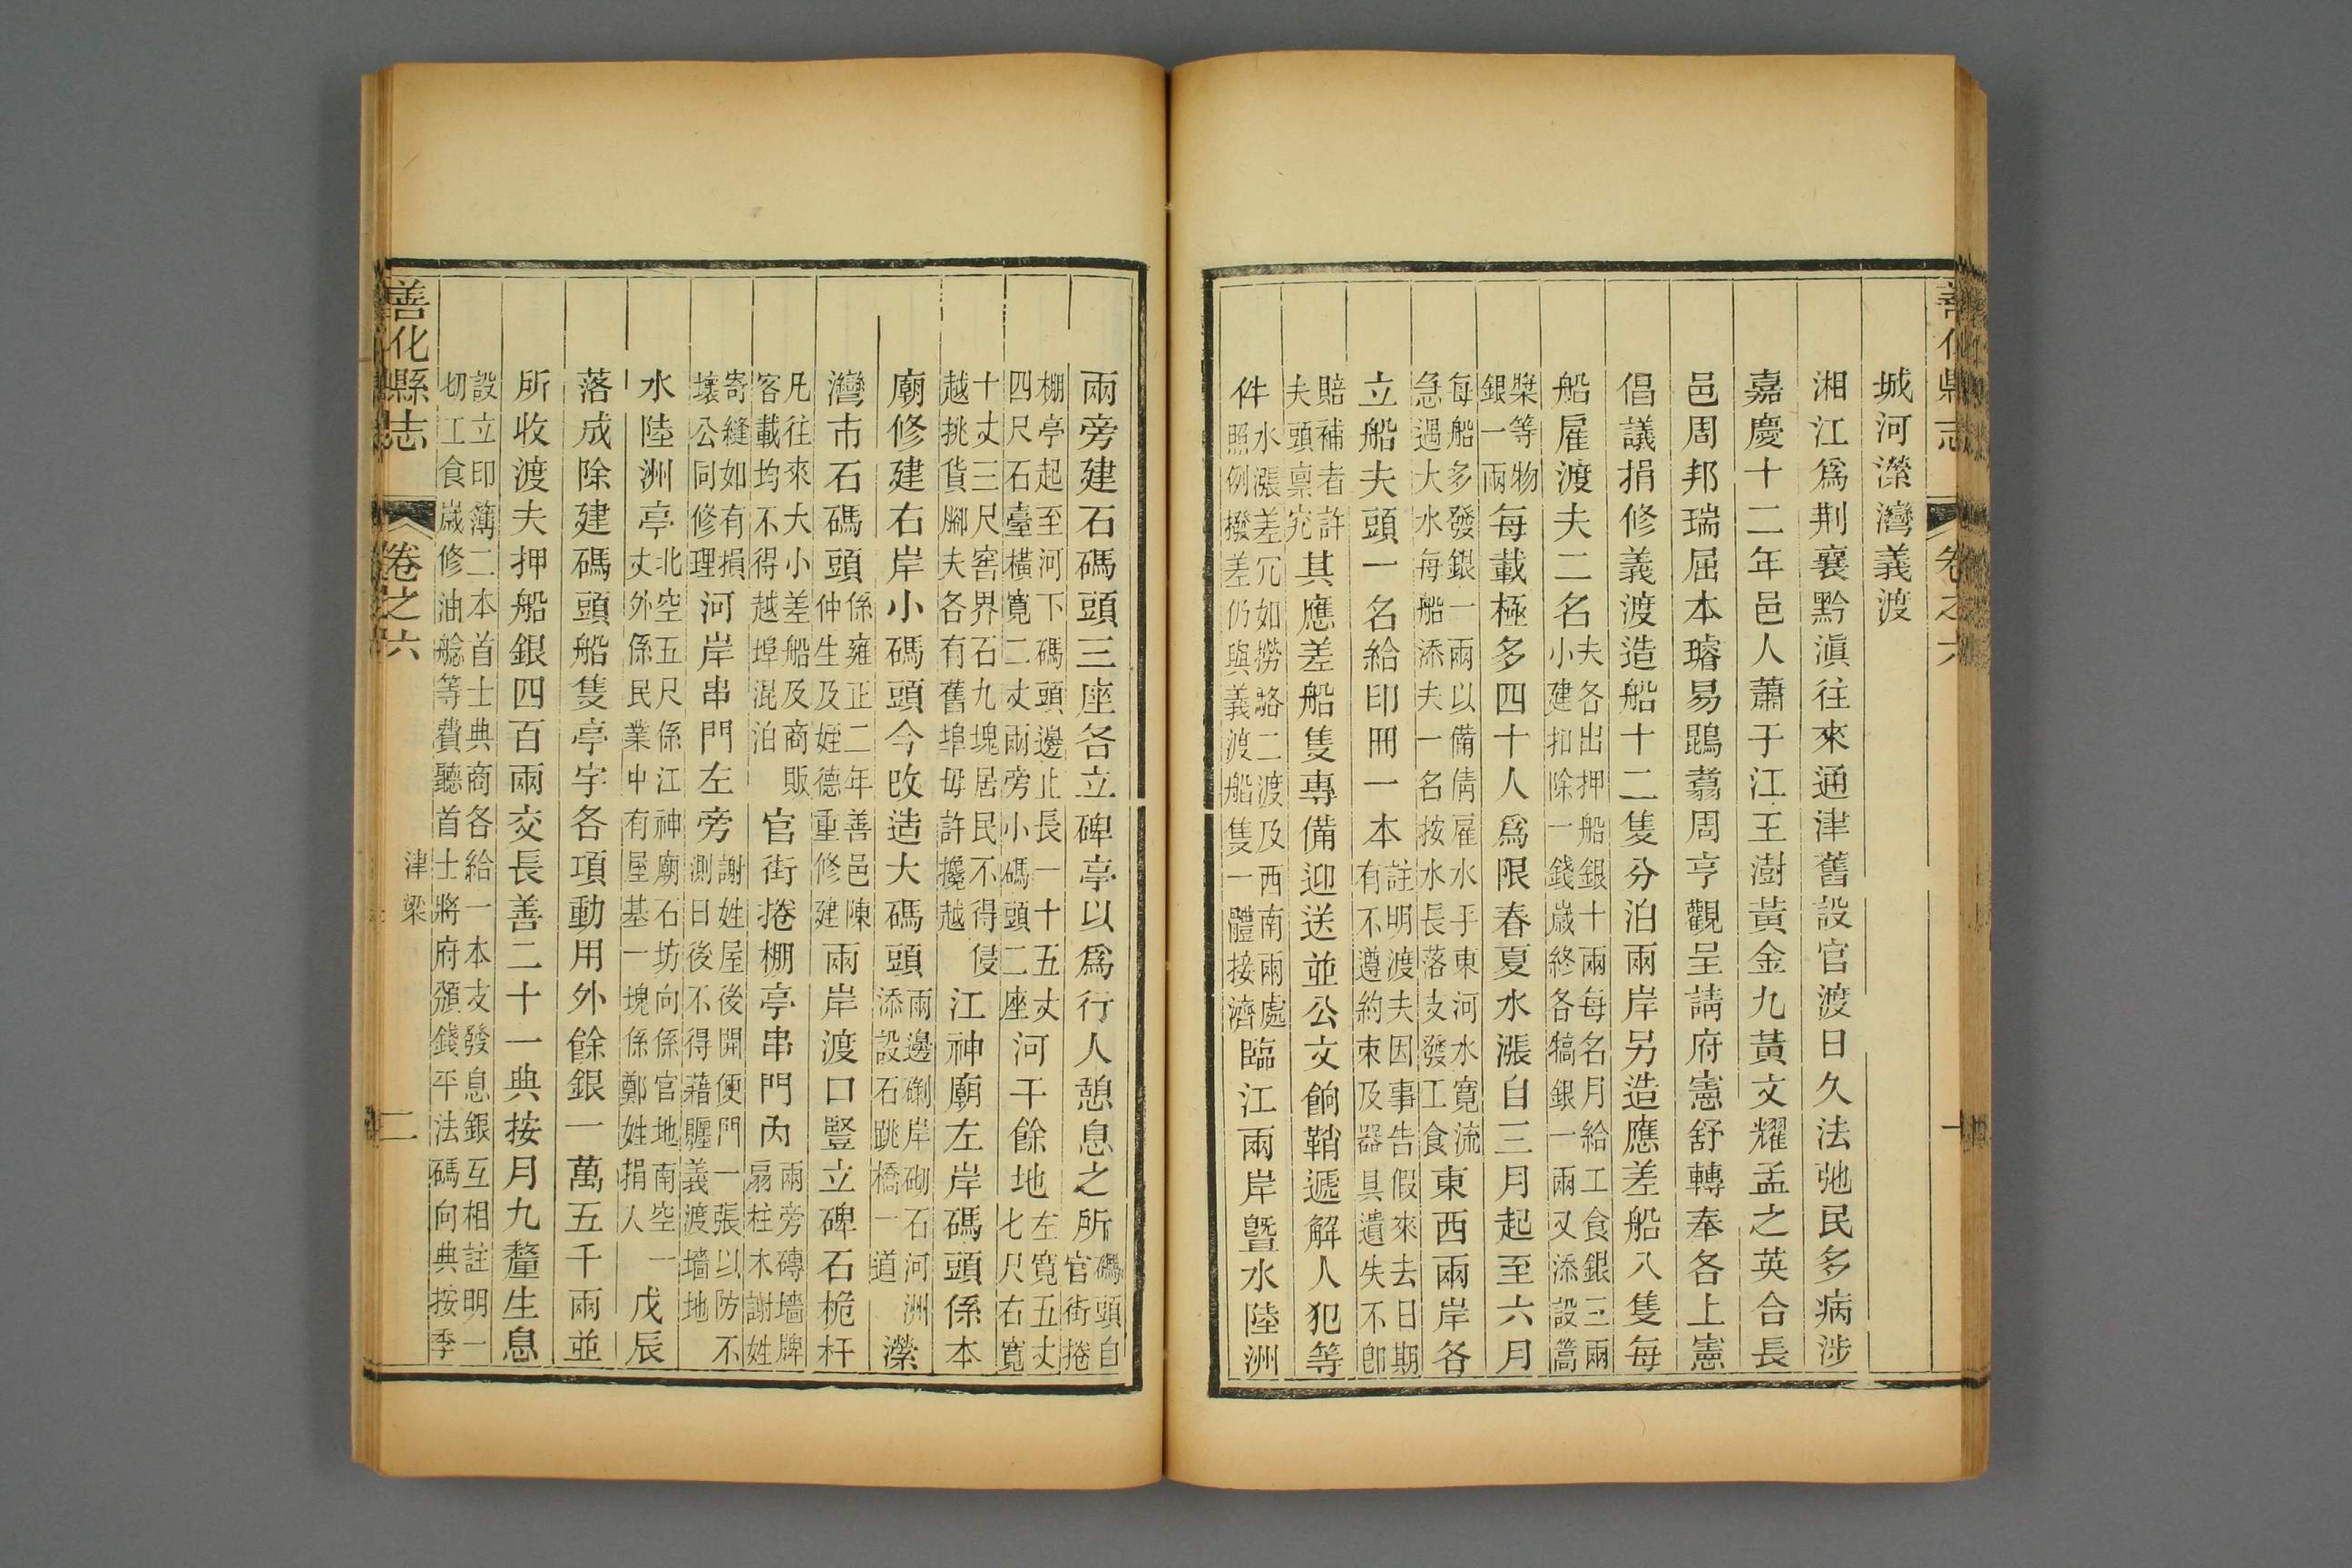 善化縣志
卷之六
一
城河濚灣義渡
湘江爲荆襄黔滇往來通津舊設官渡日久法弛民多病涉
嘉慶十二年邑人蕭于江王澍黃金九黃文耀孟之英合長
邑周邦瑞屈本璿易鵾翥周亨觀呈請府憲舒轉奉各上憲
倡議捐修義渡造船十二隻分泊兩岸另造應差船八隻每
船雇渡夫二名
夫各出押船銀十兩每名月給工食銀三兩
小建扣除一錢歲終各犒銀一兩又添設篙
槳等物
銀一兩
每載極多四十人爲限春夏水漲自三月起至六月
每船多發銀一兩以備倩雇水手東河水寬流
急遇大水每船添夫一名按水長落支發工食
東西兩岸各
立船夫頭一名給印冊一本
註明渡夫因事告假來去日期
有不遵約束及器具遺失不卽
賠補者許
夫頭稟究
其應差船隻專備迎送並公文餉鞘遞解人犯等
件
水漲差冗如撈臵二渡及西南兩處
照例撥差仍與義渡船隻一體接濟
臨江兩岸曁水陸洲
兩旁建石碼頭三座各立碑亭以爲行人憩息之所
碼頭自
官街捲
棚亭起至河下碼頭邊止長一十五丈
四尺石臺橫寬二丈兩旁小碼頭二座
河干餘地
左寬五丈
七尺右寬
十丈三尺窖界石九塊居民不得侵
越挑貨腳夫各有舊埠毋許攙越
江神廟左岸碼頭係本
廟修建右岸小碼頭今改造大碼頭
兩邊㓨岸砌石河洲
添設石跳橋一道
濚
灣市石碼頭
係雍正二年善邑陳
仲生及姪德重修建
兩岸渡口豎立碑石桅杆
凡往來大小差船及商販
客載均不得越埠混泊
官街捲棚亭串門內
兩旁磚墻牌
扇柱木謝姓
寄縫如有損
壞公同修理
河岸串門左旁
謝姓屋後開便門一張以防不
測日後不得藉躧義渡墻地
水陸洲亭
北空五尺係江神廟石坊向係官地南空一
丈外係民業中有屋基一塊係鄭姓捐人
戊辰
落成除建碼頭船隻亭宇各項動用外餘銀一萬五千兩並
所收渡夫押船銀四百兩交長善二十一典按月九釐生息
設立印簿二本首士典商各給一本支發息銀互相註明一
切工食歲修油艌等費聽首士將府頒錢平法碼向典按季
善化縣志
卷之六
津梁
二